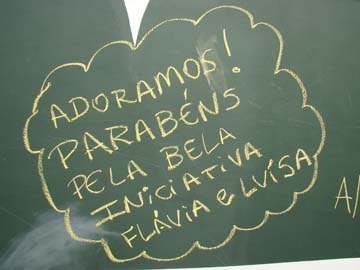 ADORAMOS!
PARABÉNS
PELA BELA
INICIATIVA
FLÁVIA e LUÍSA
A/